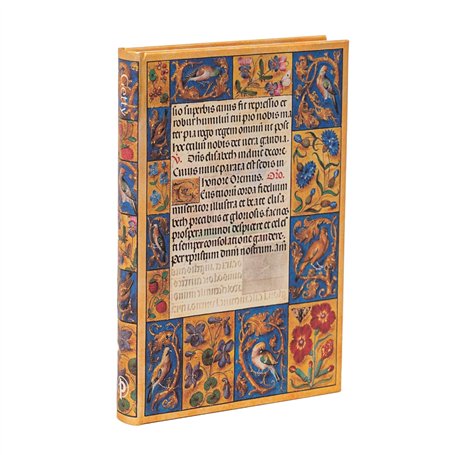 Getty
sio superbis cuius fit repressio et
robur humiliū tu pro nobis ma
ter pia rogo regem omniū ut post
hoc exiliū nobis det vera gaudia.
elisabeth decore
Cuius nunc parata est sedis in
honore Oremus. Oro.
Deus tuorum corda fidelium
miserator illustra et beate elisa
beth precibus et gloriosis fac nos
prospera mundi despicere et celes
ti semper consolatione gaudere.
Per xpristum dnm nostrum. Am